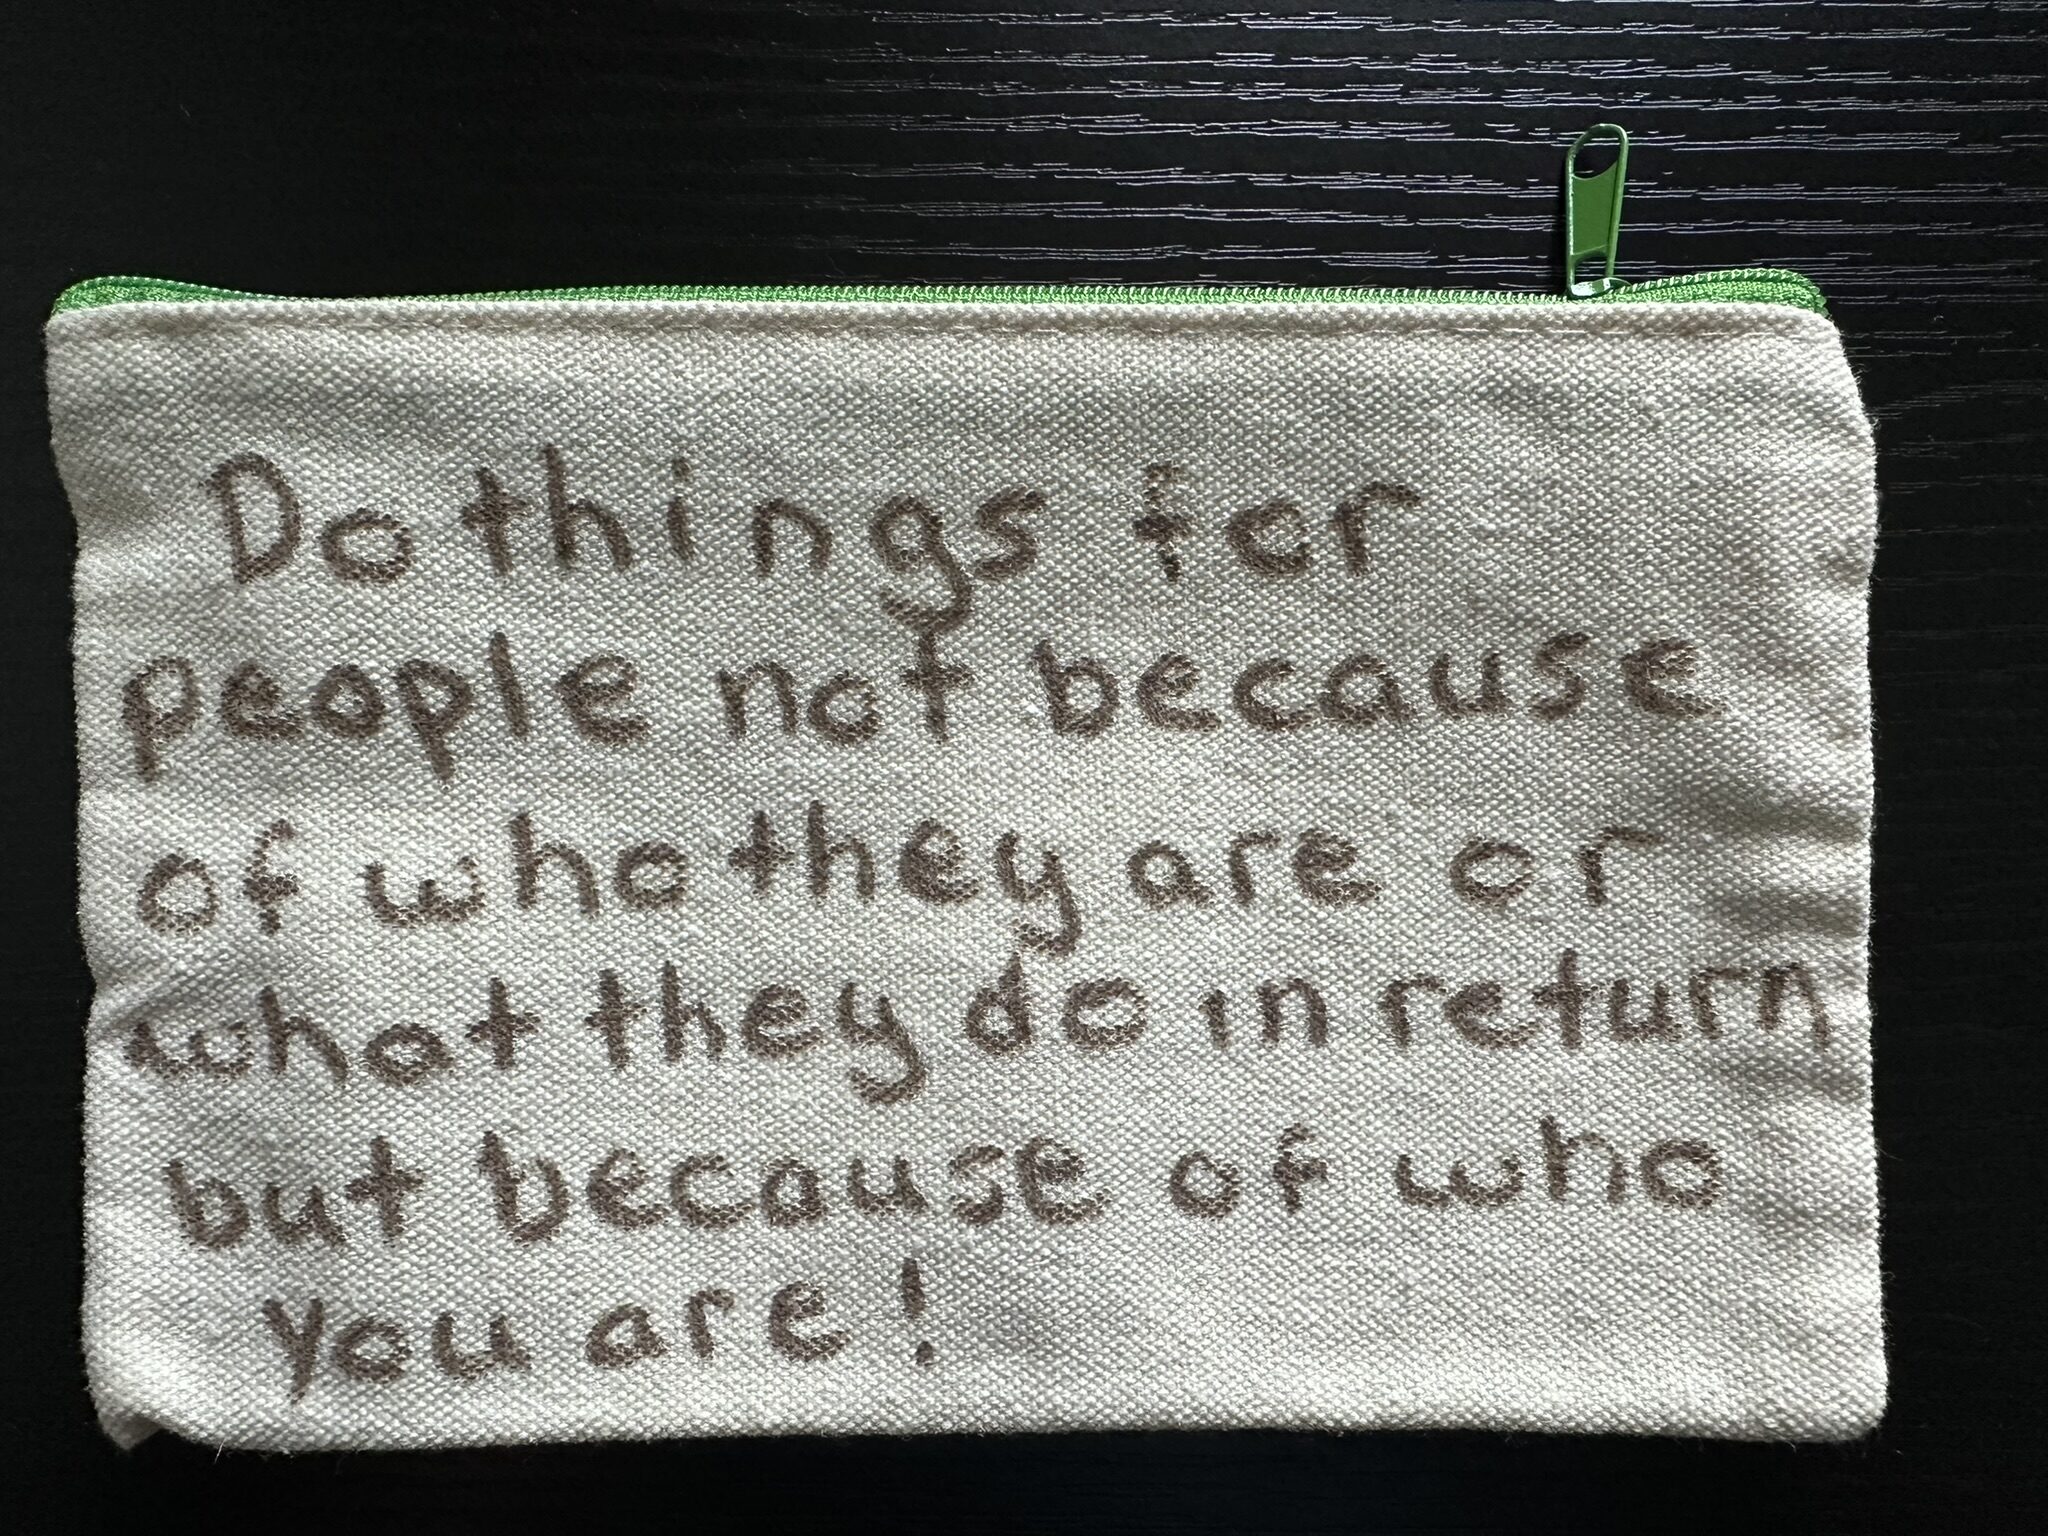 Do things for
people not because
of who they are or
what they do in return
but because of who
you are!